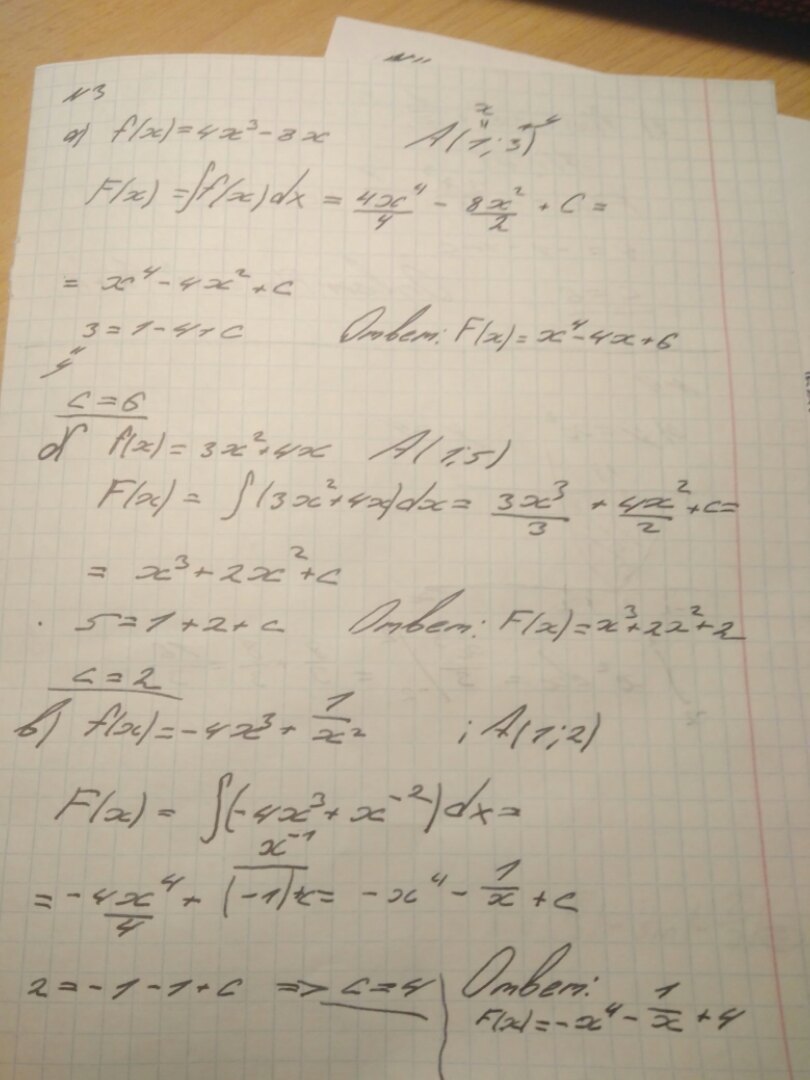 N3
а) f(x) = 4x³ - 8x A(1; 3)
x
"
y
F(x) = ∫f(x)dx = 4x⁴/4 - 8x²/2 + C =
= x⁴ - 4x² + C
3 = 1 - 4 + C Ответ: F(x) = x⁴ - 4x + 6
"
y
C = 6
б) f(x) = 3x² + 4x A(1; 5)
F(x) = ∫(3x² + 4x)dx = 3x³/3 + 4x²/2 + C =
= x³ + 2x² + C
5 = 1 + 2 + C Ответ: F(x) = x³ + 2x² + 2
C = 2
в) f(x) = -4x³ + 1/x² ; A(1; 2)
F(x) = ∫(-4x³ + x⁻²)dx =
= -4x⁴/4 + x⁻¹/(-1) + C = -x⁴ - 1/x + C
2 = -1 - 1 + C => C = 4 Ответ:
F(x) = -x⁴ - 1/x + 4